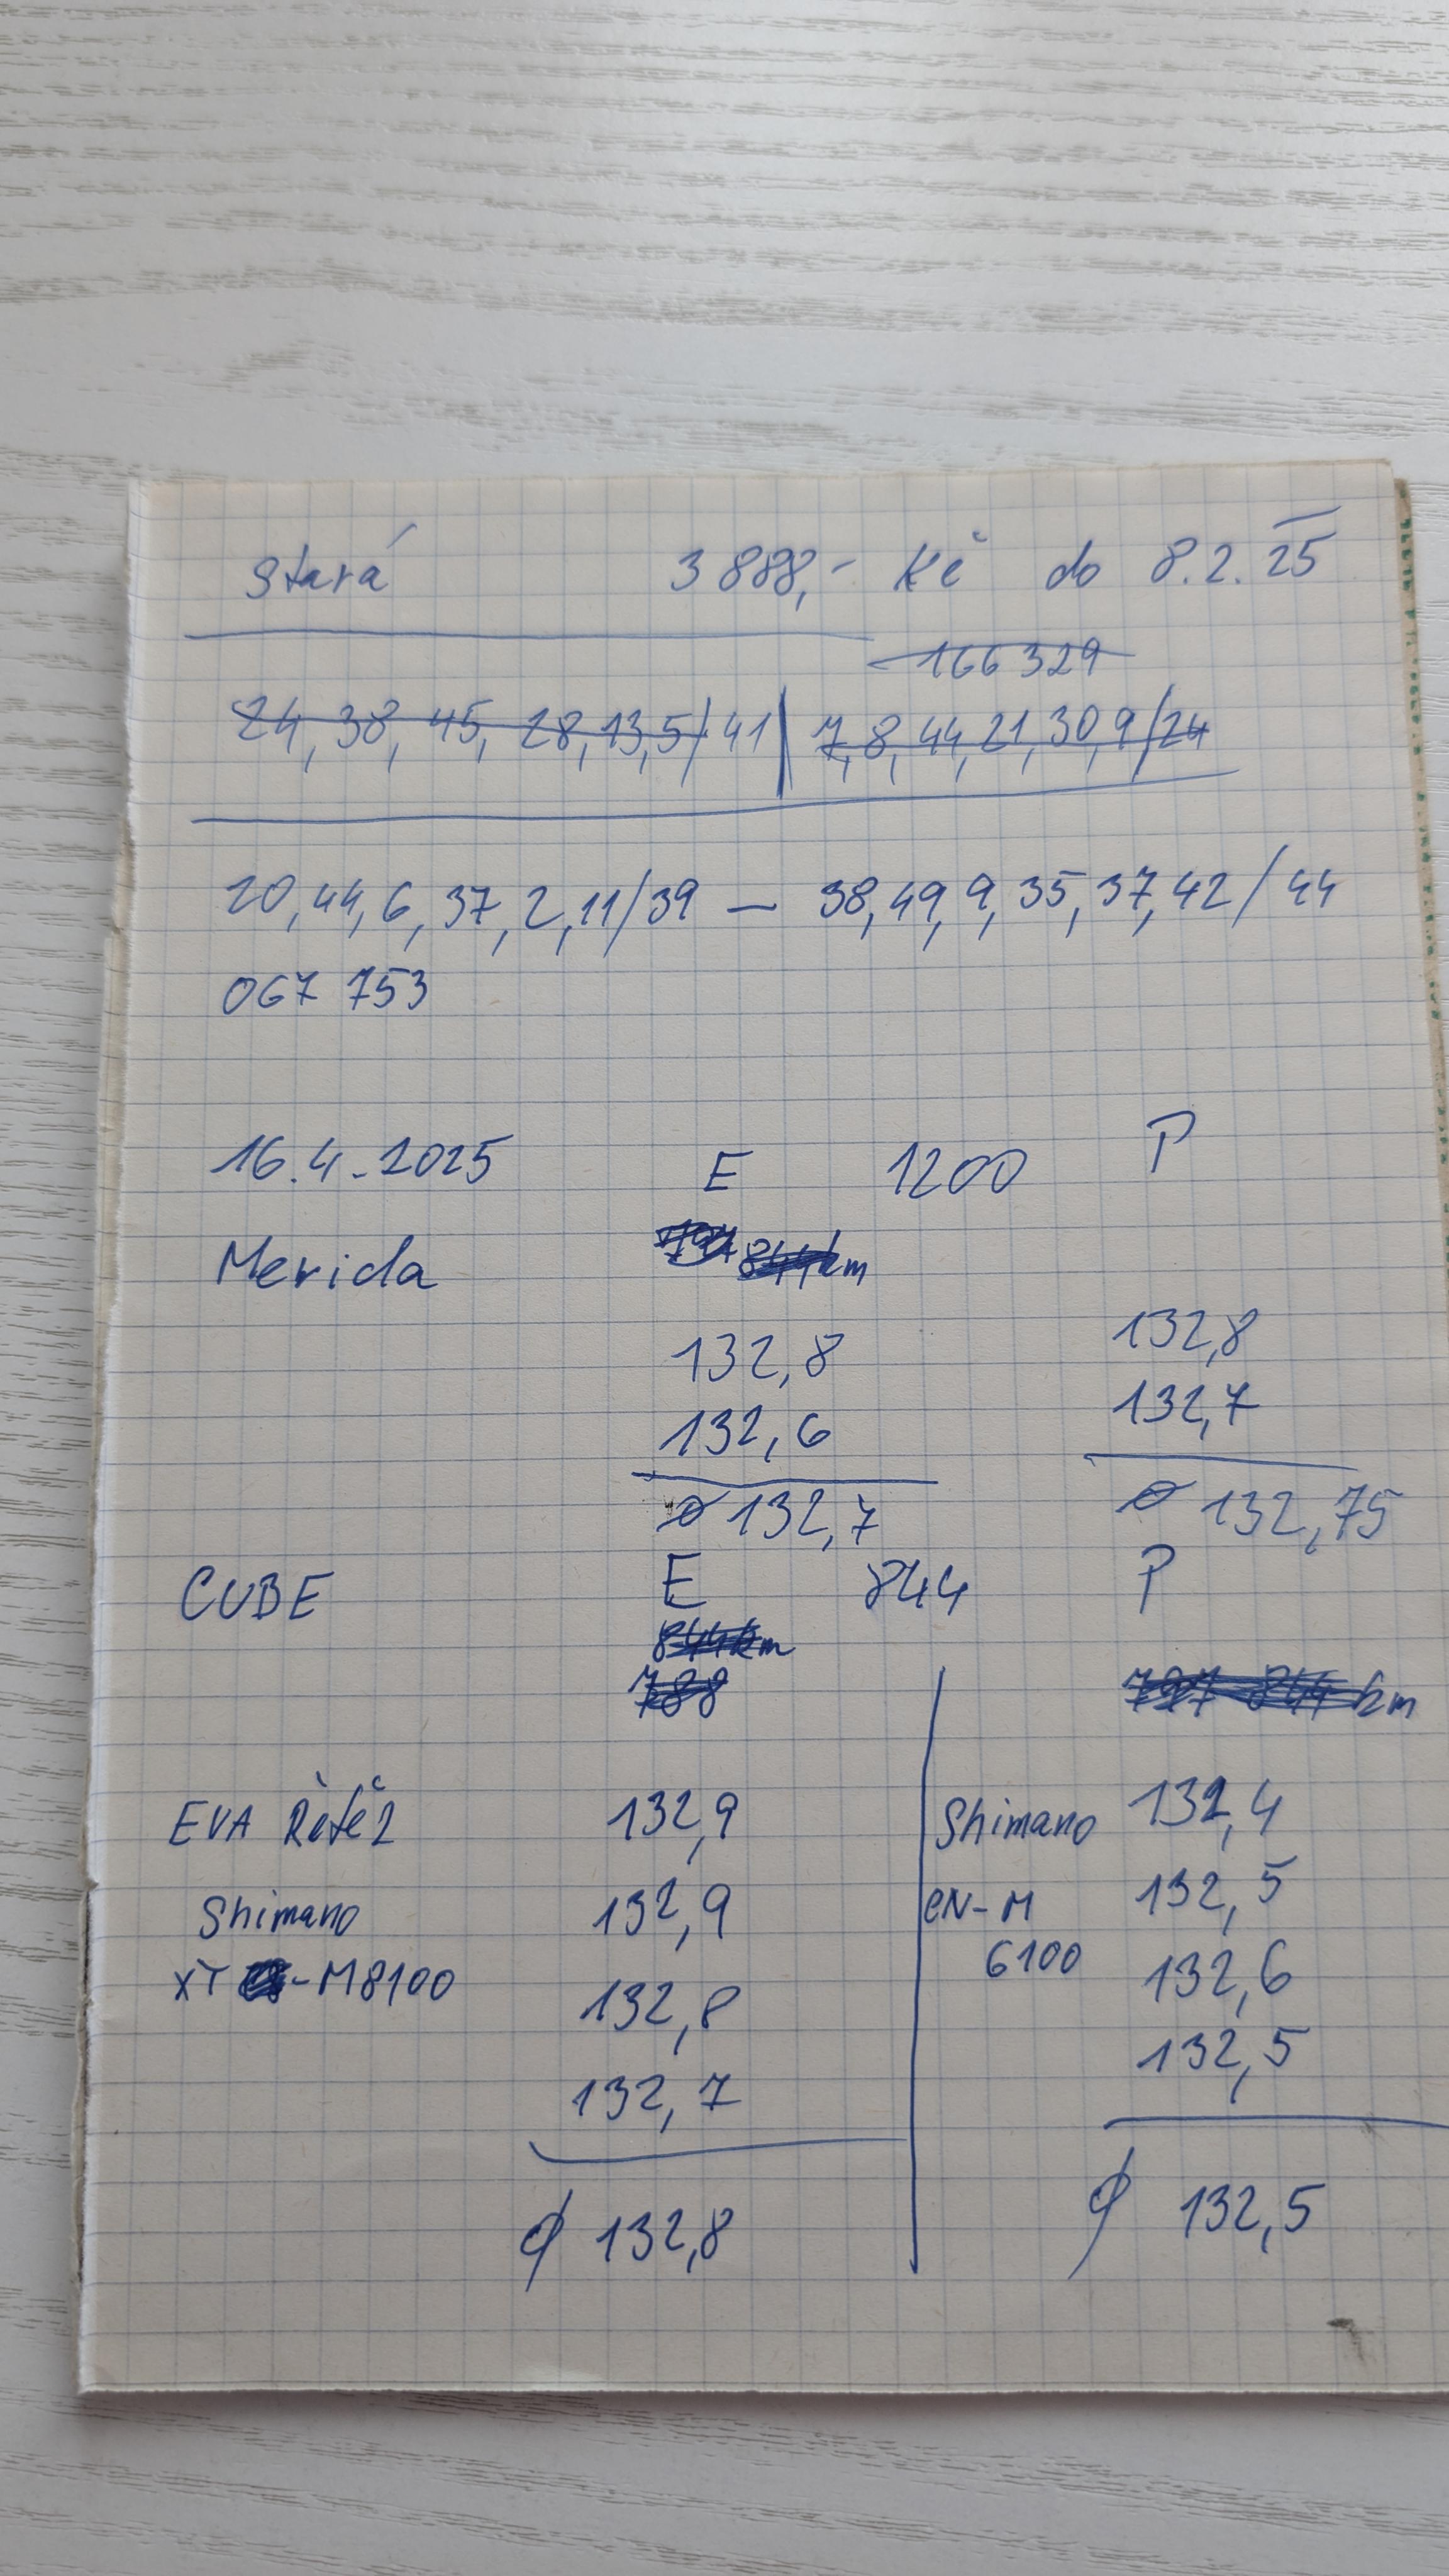 Stará 3 888,- Kč do 8.2.25
166 329
24, 38, 45, 28, 13, 5/41 | 7, 8, 44, 21, 30, 9/24
20, 44, 6, 37, 2, 11/39 — 38, 49, 9, 35, 37, 42/44
067 753
16.4.2025 E 1200 P
Merida 844km
132,8 132,8
132,6 132,7
Ø 132,7 Ø 132,75
CUBE E 844 P
844km
788 844 km
EVA Řetěz 132,9 Shimano 132,4
Shimano 132,9 CN-M 132,5
XT -M8100 132,8 6100 132,6
132,7 132,5
Ø 132,8 Ø 132,5